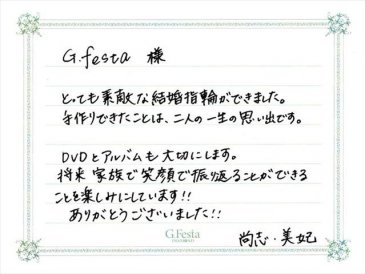 G.festa 様
とっても素敵な結婚指輪ができました。
手作りできたことは、二人の一生の思い出です。
DVDとアルバムも大切にします。
将来 家族で笑顔で振り返ることができる
ことを楽しみにしています!!
ありがとうございました!!
G.Festa
尚志・美妃